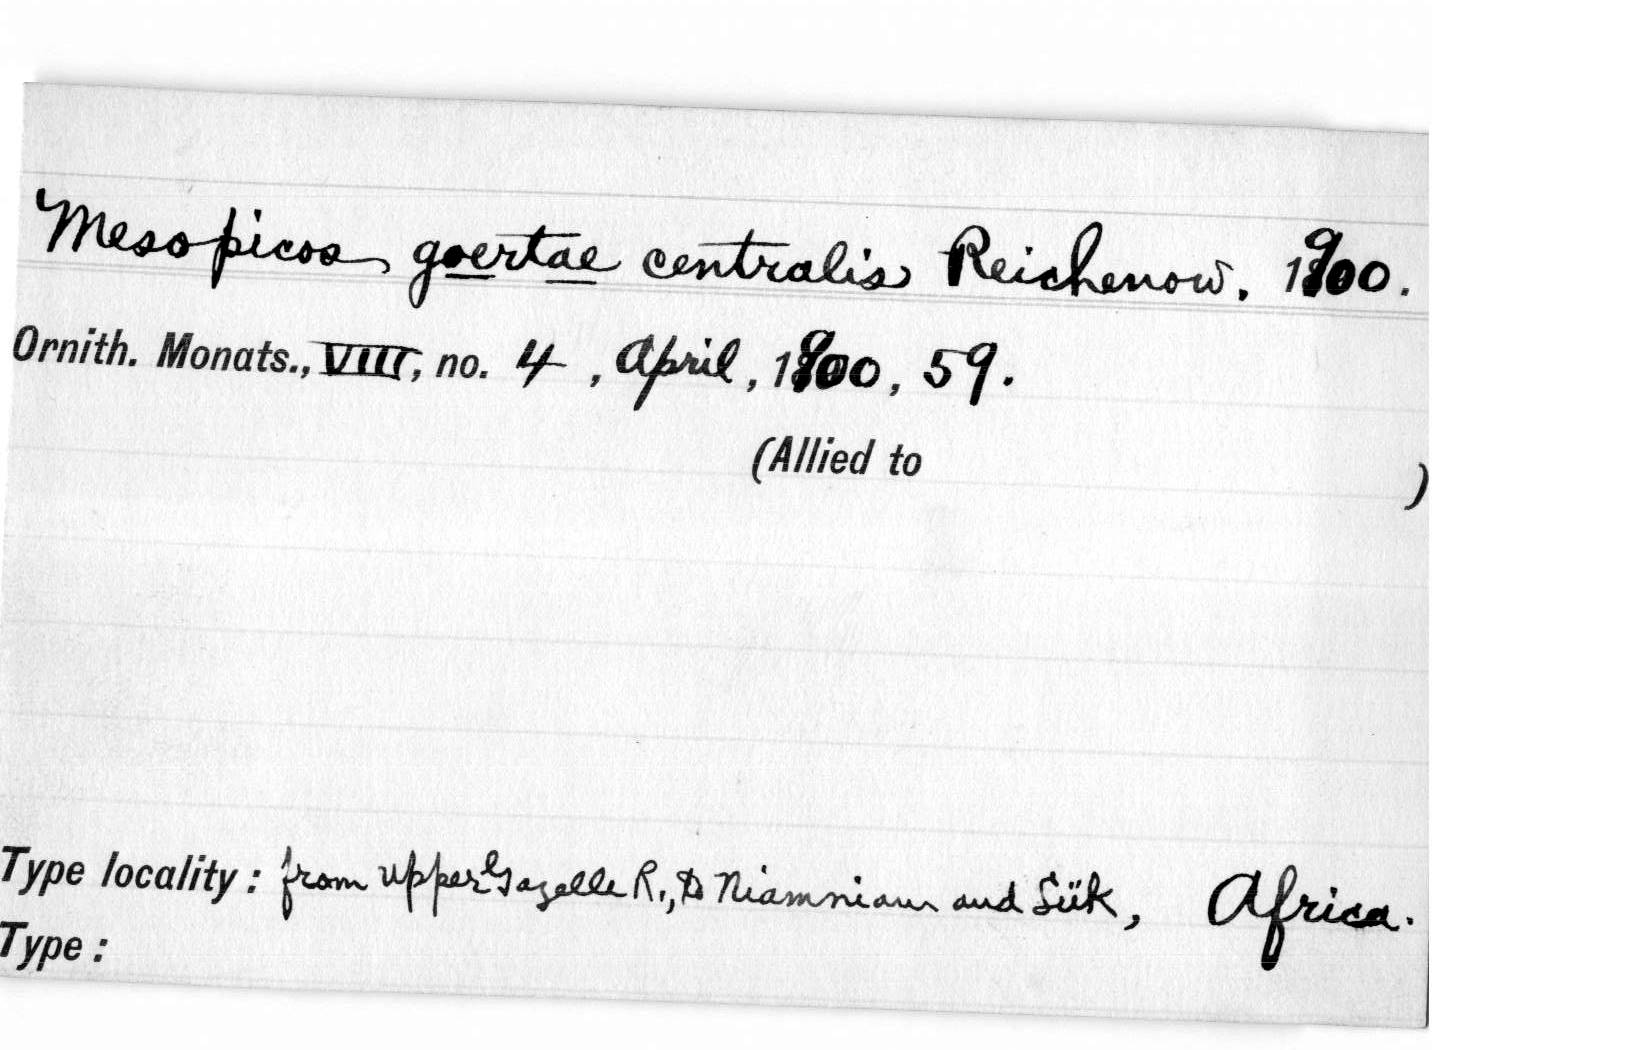 Mesopicos goertae centralis Reichenow, 1900.
Ornith. Monats., VIII, no. 4, April, 1900, 59.
(Allied to )
Type locality: from upper Gazelle R., to Niamniam and Sük, Africa.
Type: